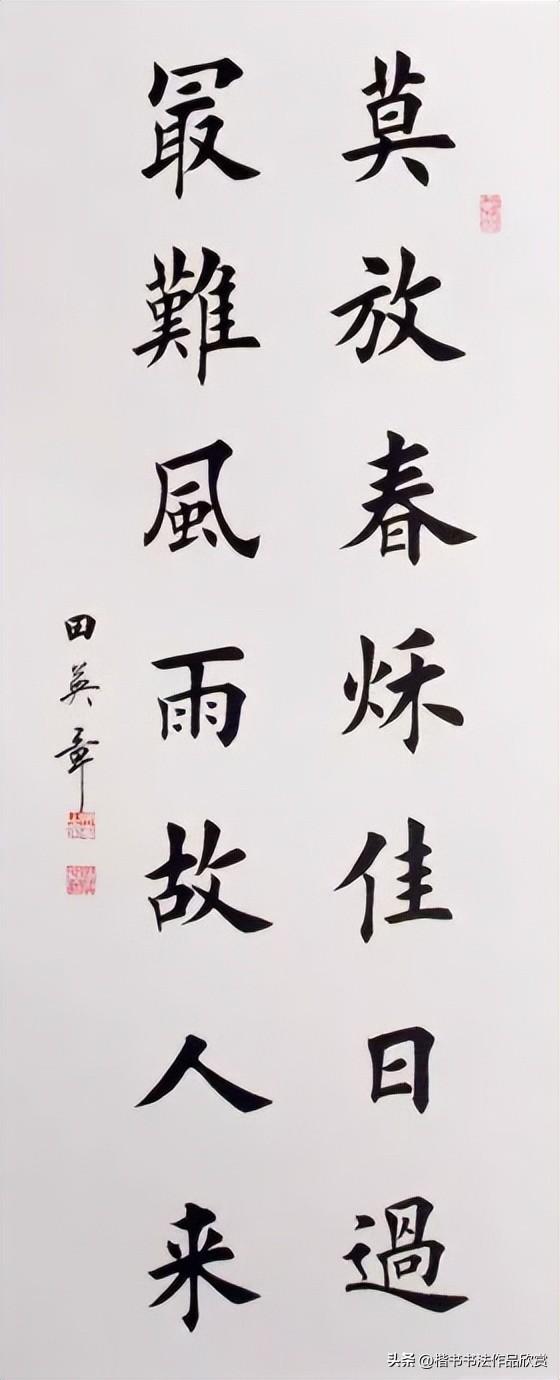 莫放春秌佳日過
最難風雨故人来
田英章
头条 @楷书书法作品欣赏